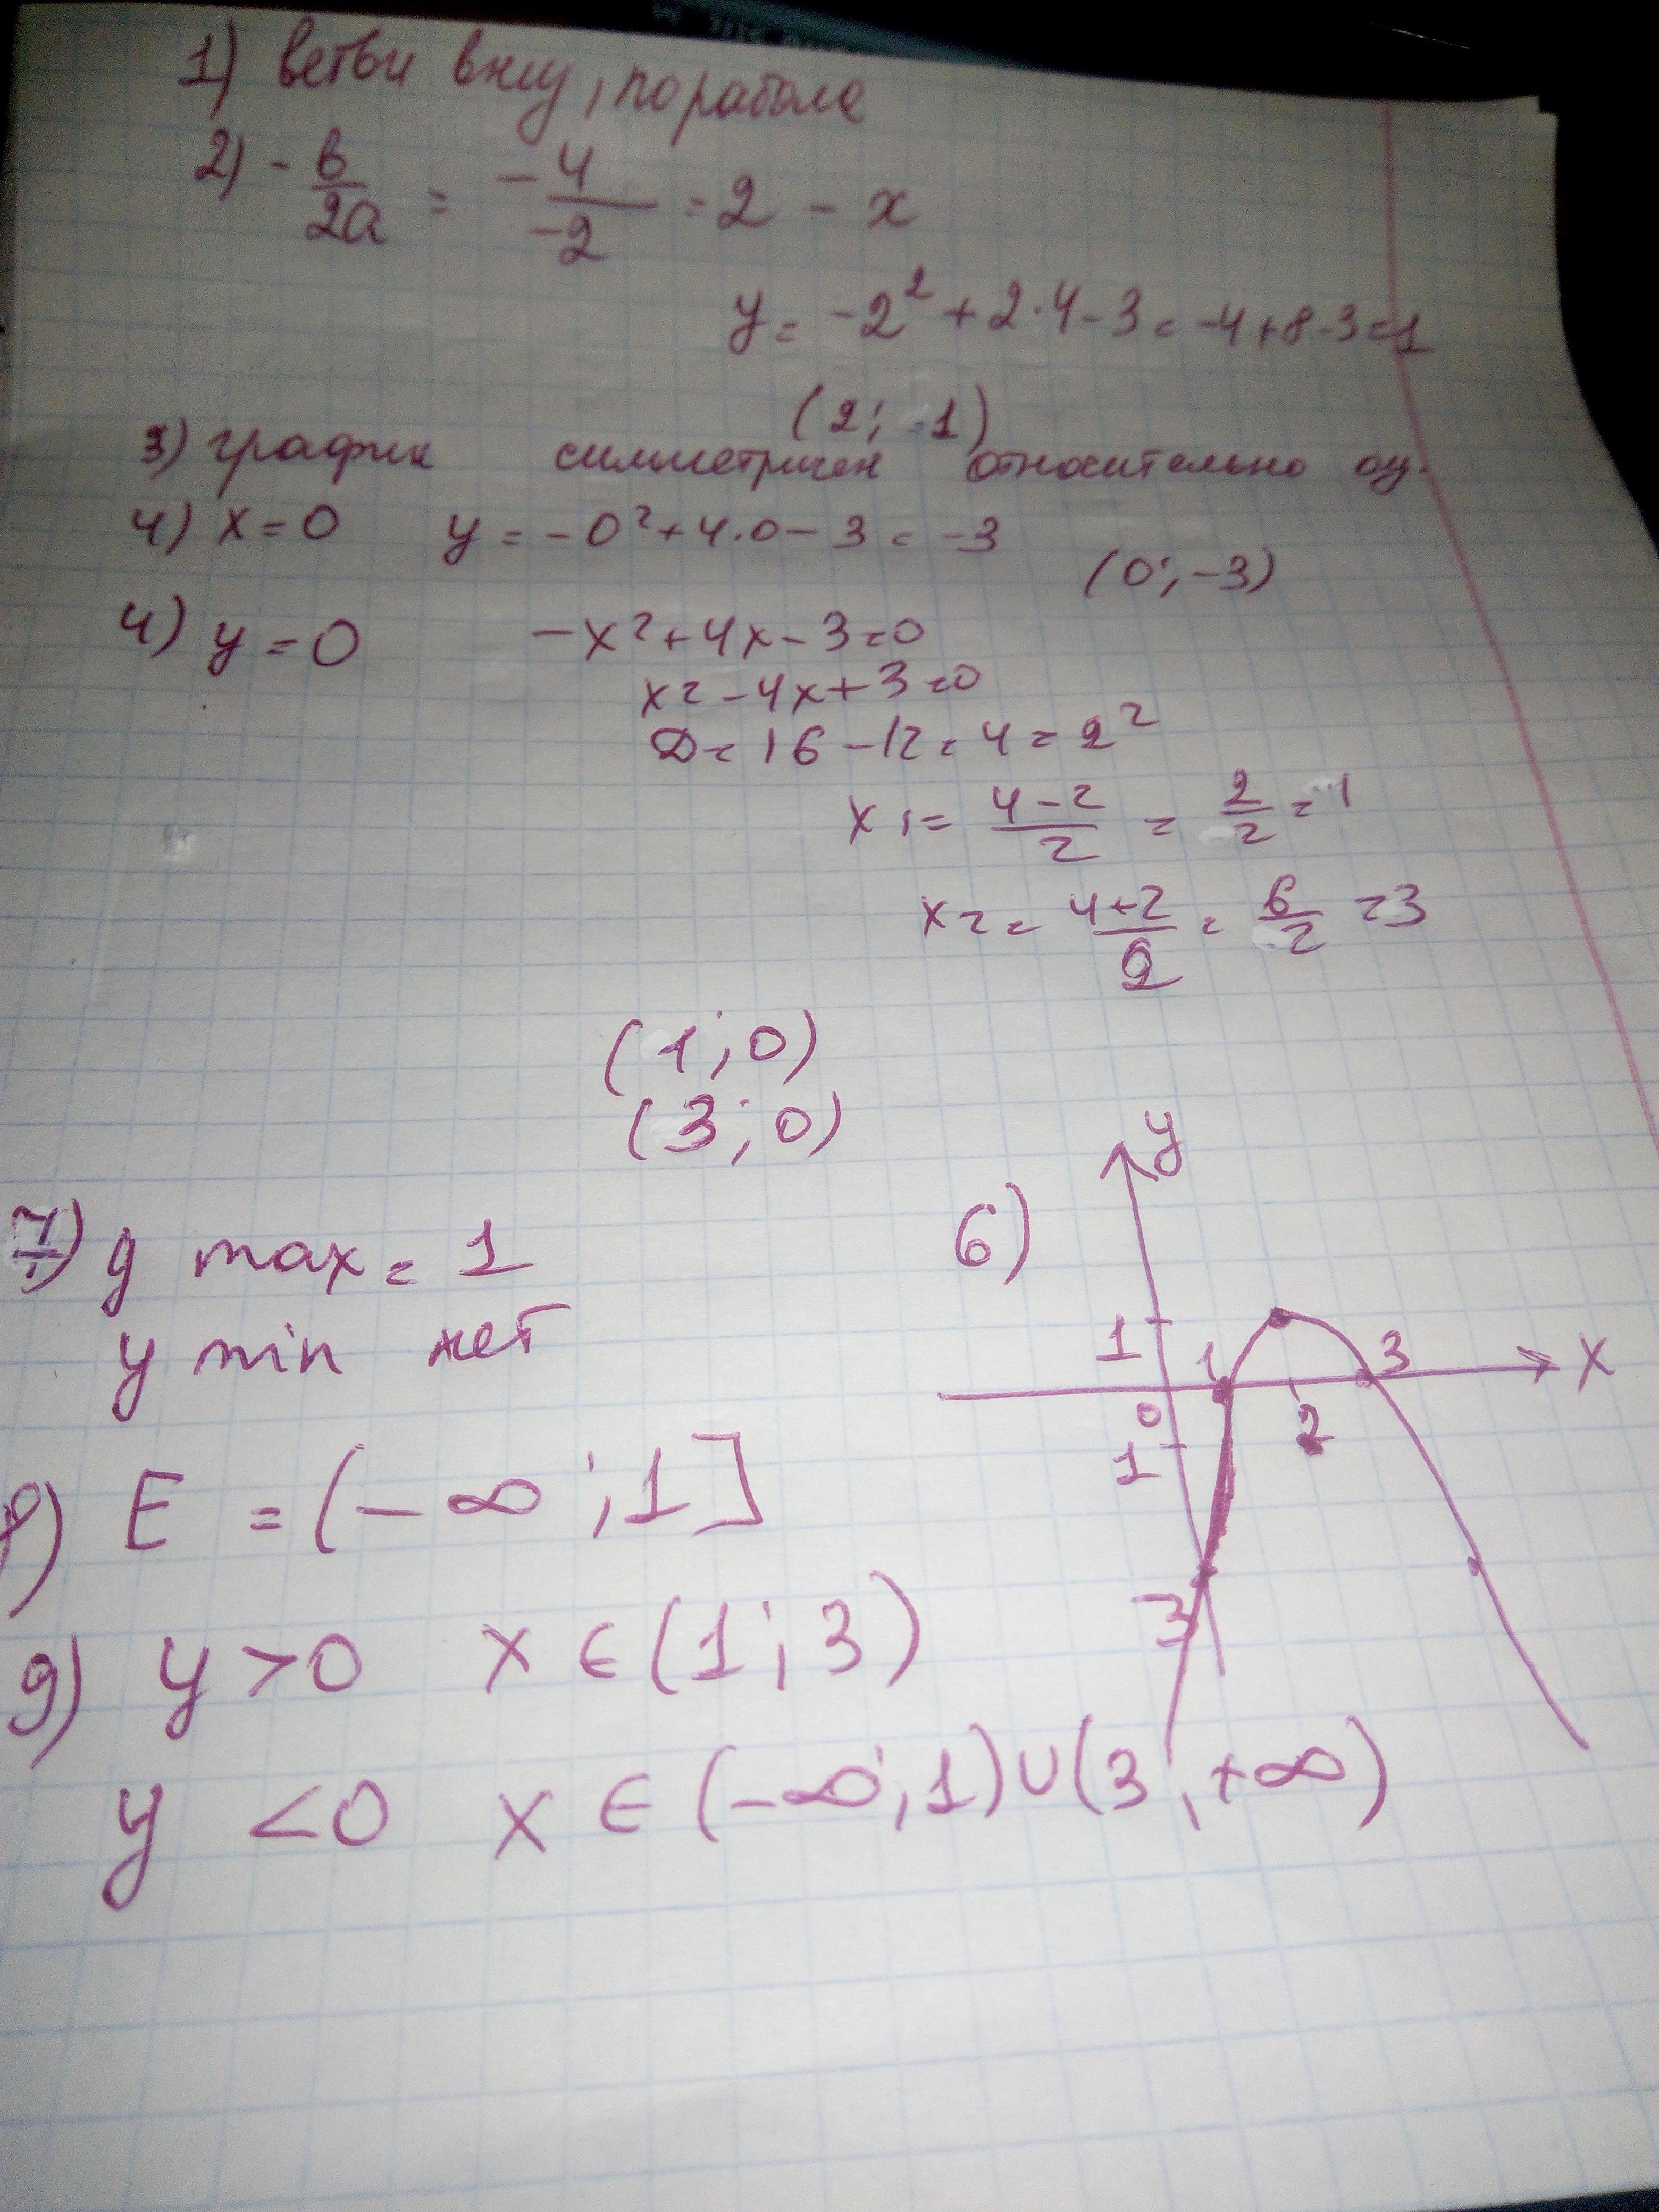 1) ветви вниз, порабола
2) - в/2a = -4/-2 = 2 - x
y = -2² + 2·4 - 3 = -4 + 8 - 3 = 1
(2; 1)
3) график симметричен относительно оу.
4) x = 0 y = -0² + 4·0 - 3 = -3
(0; -3)
4) y = 0 -x² + 4x - 3 = 0
x² - 4x + 3 = 0
D = 16 - 12 = 4 = 2²
x1 = 4-2/2 = 2/2 = 1
x2 = 4+2/2 = 6/2 = 3
(1; 0)
(3; 0)
6)
y
1
1
3
x
0
2
1
-3
7) y max = 1
y min нет
8) E = (-∞; 1]
9) y > 0 x ∈ (1; 3)
y < 0 x ∈ (-∞; 1) ∪ (3; +∞)